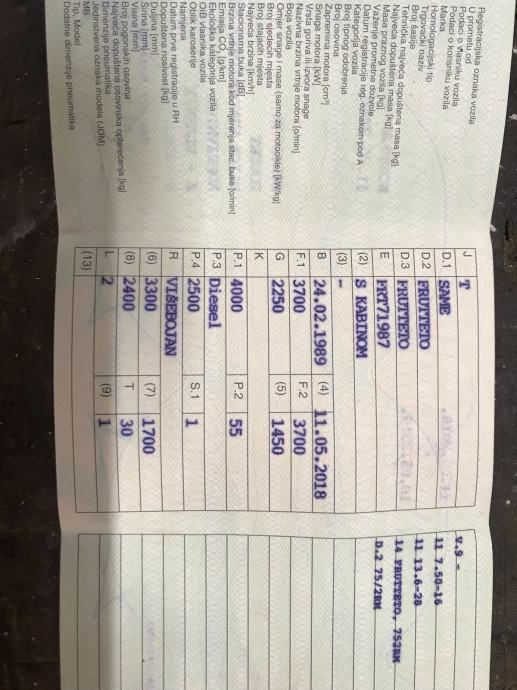 Registracijska oznaka vozila
U prometu od
Podaci o vlasniku vozila
Podaci o korisniku vozila
Marka
Homologacijski tip
Trgovački naziv
Broj šasije
Tehnička najveća dopuštena masa [kg]
Najveća dopuštena masa [kg]
Masa praznog vozila [kg]
Važenje prometne dozvole
Datum registracije reg. oznakom pod A
Kategorija vozila
Broj tipnog odobrenja
Broj osovina
Zapremina motora [cm³]
Snaga motora [kW]
Vrsta goriva ili izvora snage
Nazivna brzina vrtnje motora [o/min]
Boja vozila
Omjer snage i mase (samo za motocikle) [kW/kg]
Broj sjedećih mjesta
Broj stajaćih mjesta
Najveća brzina [km/h]
Stacionarna buka [dB]
Brzina vrtnje motora kod mjerenja stac. buke [o/min]
Emisija CO₂ [g/km]
OIB vlasnika vozila
Oblik karoserije
Namjena
Datum prve registracije u RH
Dopuštena nosivost [kg]
Duljina [mm]
Širina [mm]
Visina [mm]
Broj pogonskih osovina
Najveće dopušteno osovinsko opterećenje [kg]
Dimenzije pneumatika
Jedinstvena oznaka modela (JOM)
MB
Tip, Model
Dodatne dimenzije pneumatika
J T
D.1 SAME
D.2 FRUTTETO
D.3 FRUTTETO
E FRT71987
(2) S KABINOM
(3) -
B 24.02.1989 (4) 11.05.2018
F.1 3700 F.2 3700
G 2250 (5) 1450
K
P.1 4000 P.2 55
P.3 Diesel
P.4 2500 S.1 1
R VIŠEBOJAN
(6) 3300 (7) 1700
(8) 2400 T 30
L 2 (9) 1
(13)
V.9 -
11 7.50-16
11 13.6-28
14 FRUTTETO, 752RM
D.2 75/2RM